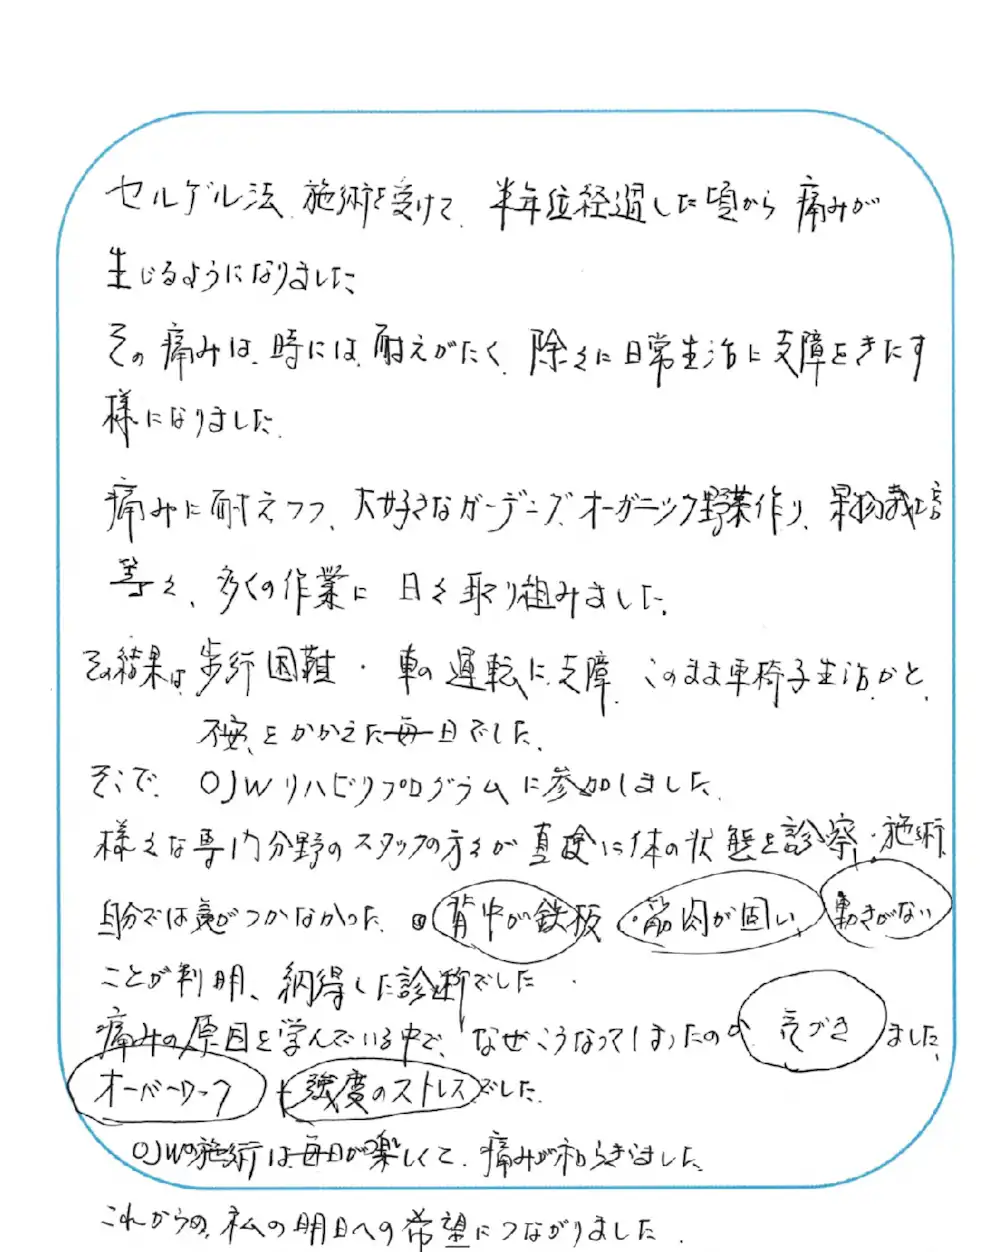 セルゲル法 施術を受けて、半年位経過した頃から 痛みが
生じるようになりました
その痛みは、時には、耐えがたく、除々に日常生活に支障をきたす
様になりました。
痛みに耐えつつ、大好きなガーデニング、オーガニック野菜作り、果物栽培
等々、多くの作業に 日々取り組みました。
その結果は、歩行困難・車の運転に支障、このまま車椅子生活かと、
不安をかかえた毎日でした。
そこで、OJWリハビリプログラムに参加しました。
様々な専門分野のスタッフの方々が 真摯に体の状態を診察、施術
自分では気がつかなかった ・背中が鉄板 ・筋肉が固い、動きがない
ことが判明、納得した診断でした
痛みの原因を学んでいる中で、なぜこうなってしまったのか 気づきました。
オーバーワーク + 強度のストレスでした。
OJWの施術は毎日が楽しくて、痛みが和らぎました
これからの、私の明日への希望につながりました.